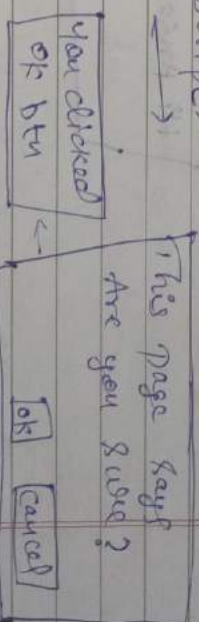 This page says
Are you sure?
ok
cancel
you clicked
ok btn